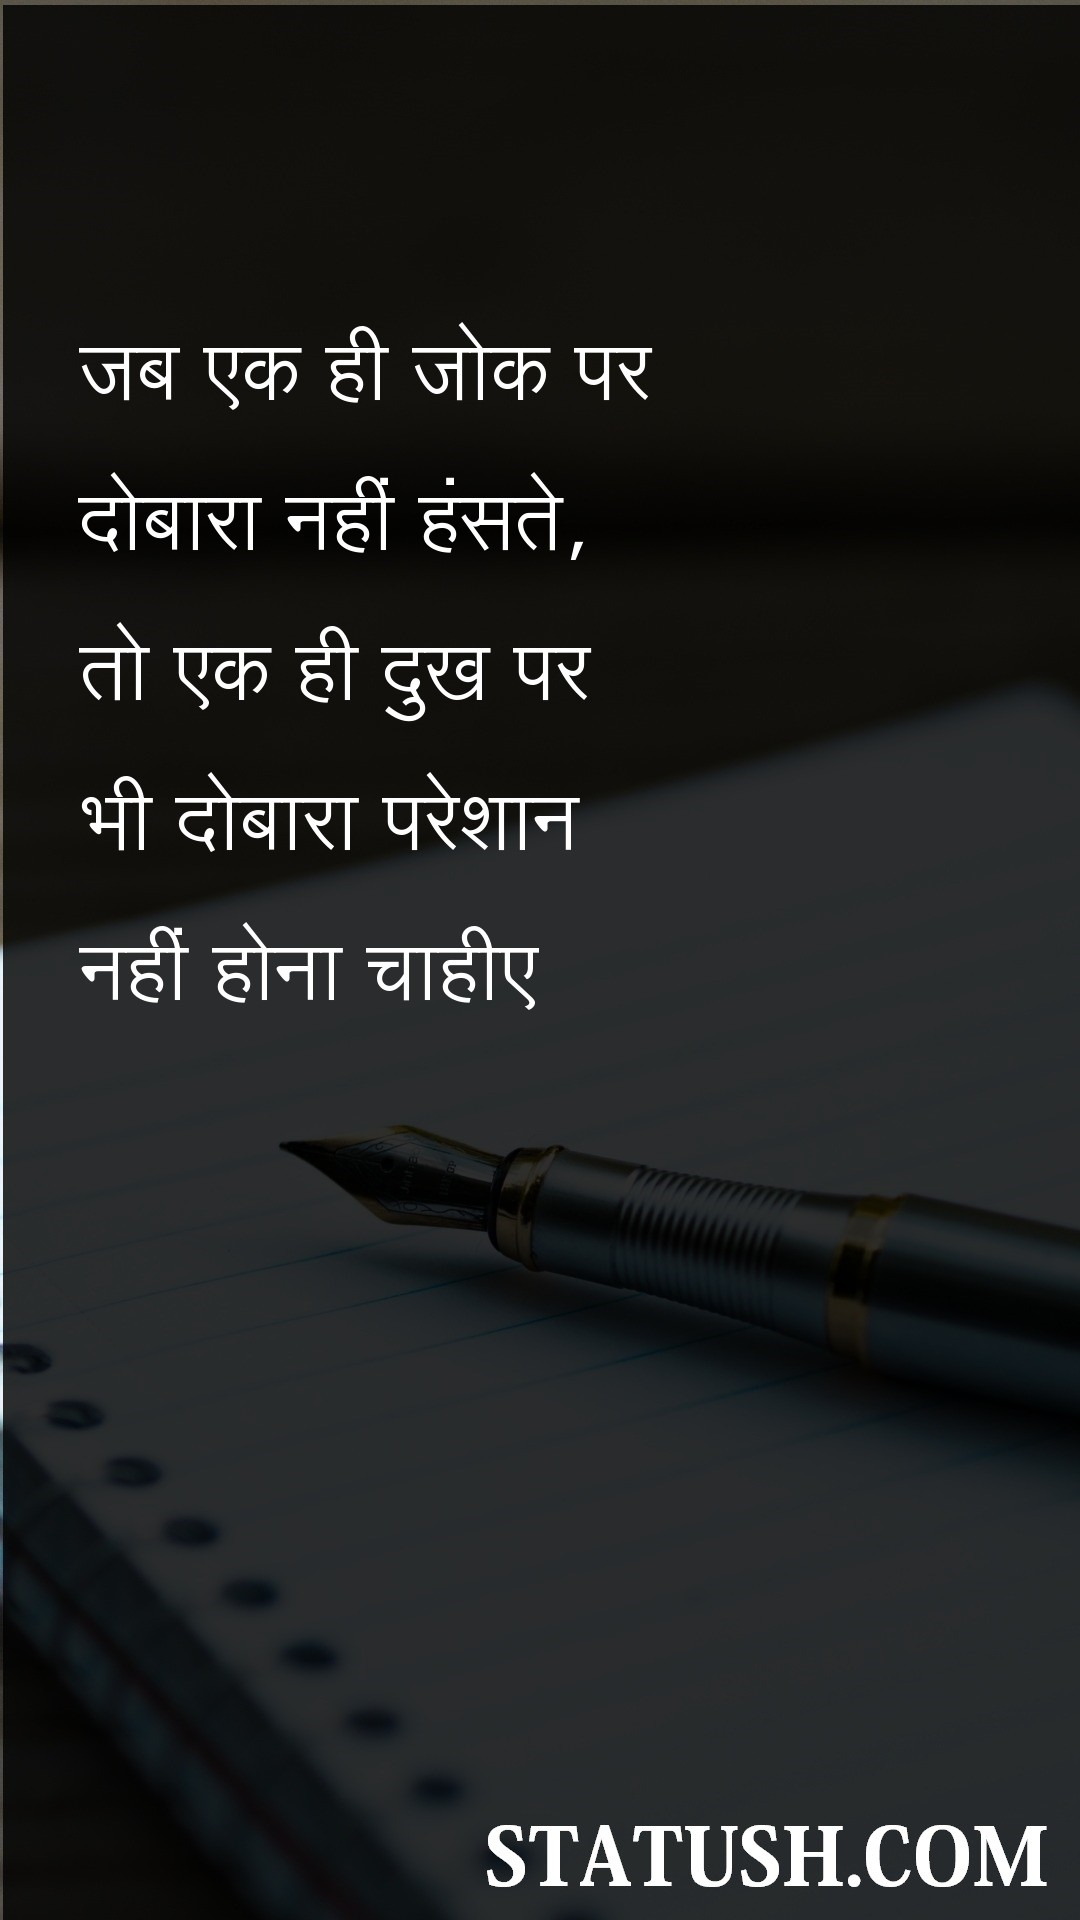 जब एक ही जोक पर
दोबारा नहीं हंसते,
तो एक ही दुख पर
भी दोबारा परेशान
नहीं होना चाहीए
STATUSH.COM